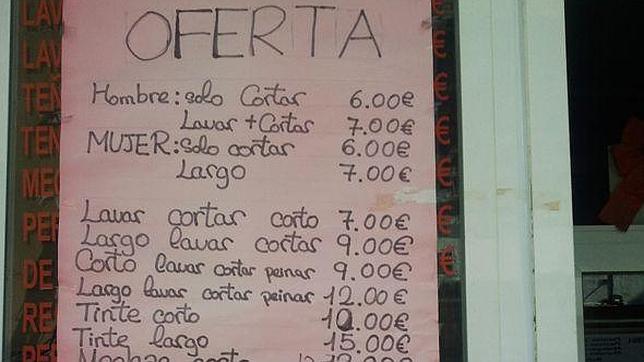 OFERTA
Hombre: solo Cortar 6.00€
Lavar + Cortar 7.00€
MUJER: solo cortar 6.00€
Largo 7.00€
Lavar cortar corto 7.00€
Largo lavar cortar 9.00€
Corto lavar cortar peinar 9.00€
Largo lavar cortar peinar 12.00€
Tinte corto 10.00€
Tinte largo 15.00€
LAV
LAV
TEÑ
TEÑ
DE
RE
€
€
€
€
€
€